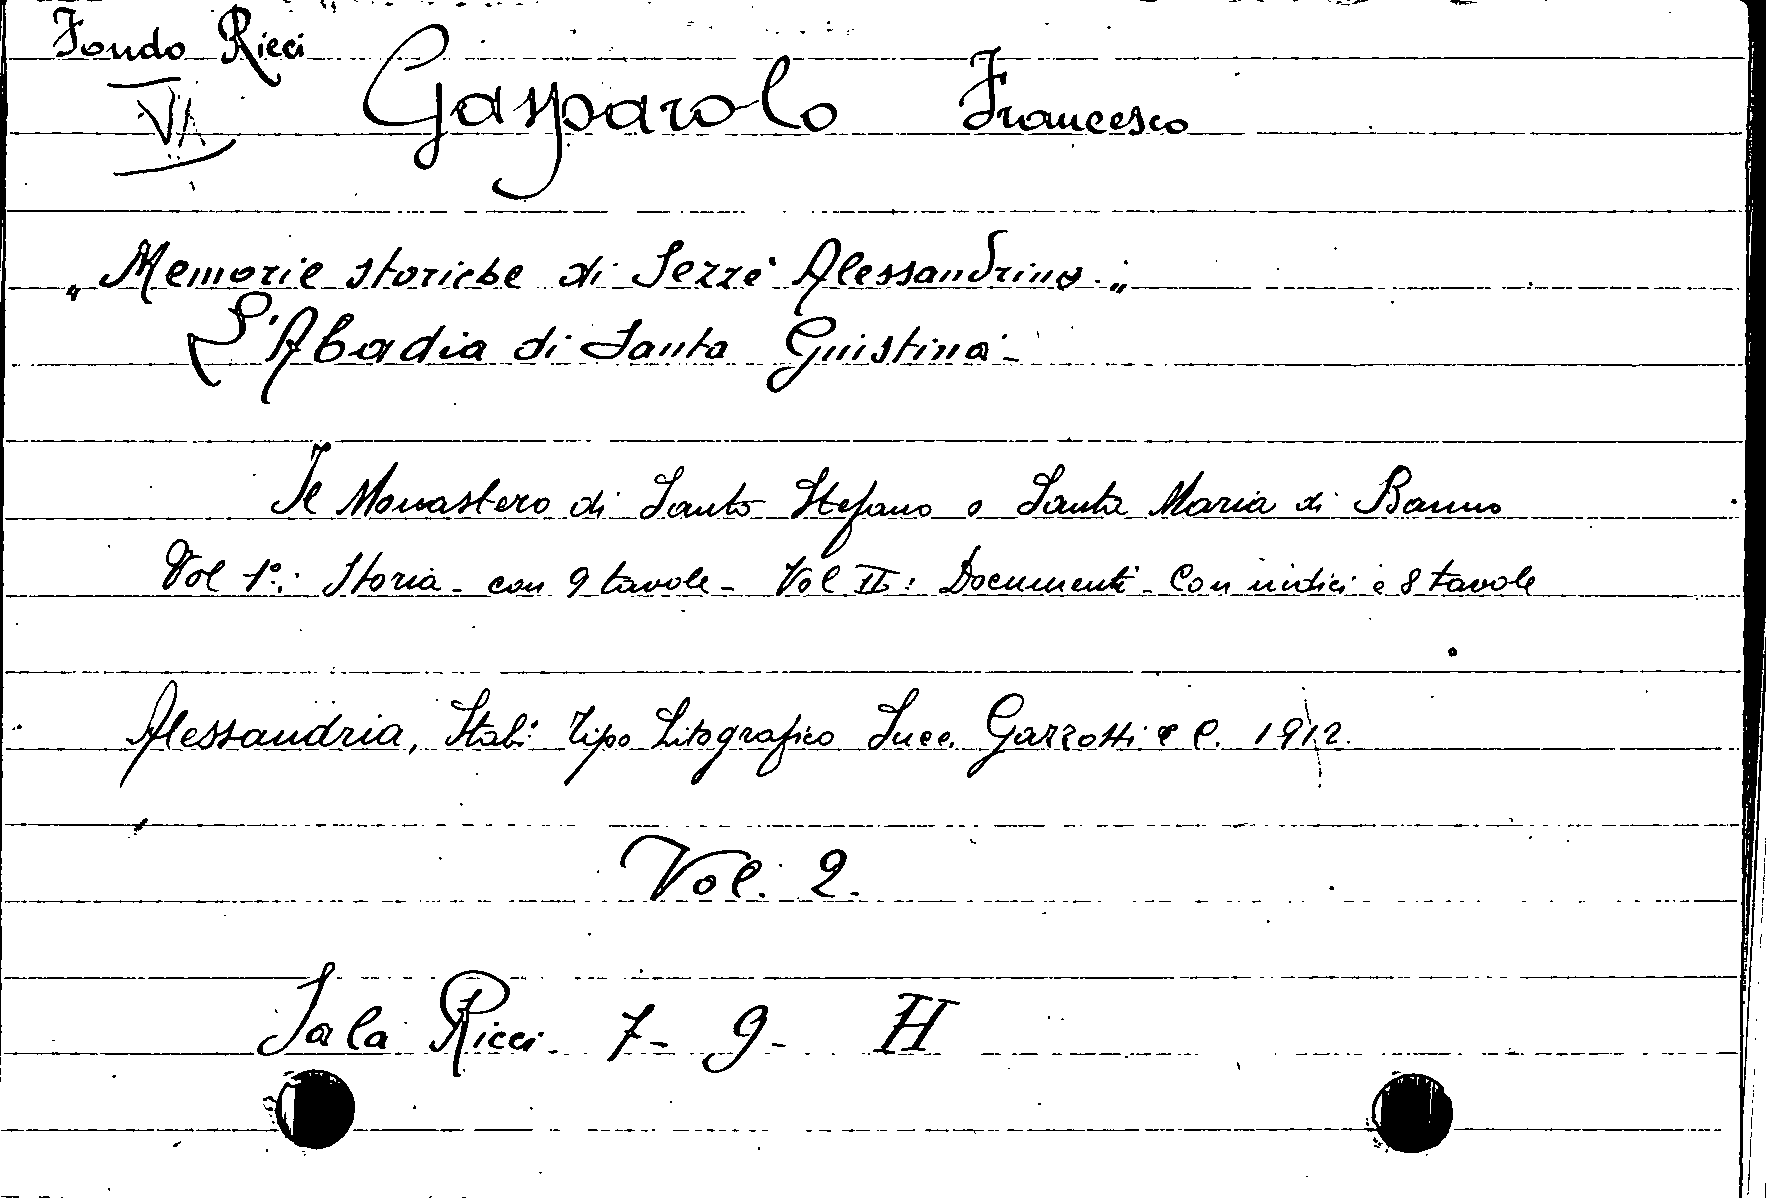 Fondo Ricci
VA Gasparolo Francesco
„Memorie storiche di Sezzè Alessandrino„
L'Abadia di Santa Giustina -
Il Monastero di Santo Stefano o Santa Maria di Banno
Vol 1°: Storia - con 9 tavole - Vol II: Documenti - Con indici e 8 tavole
Alessandria, Stab: Tipo Litografico Succ. Gazzotti e C. 1912.
Vol. 2.
Sala Ricci - 7 - 9 - H